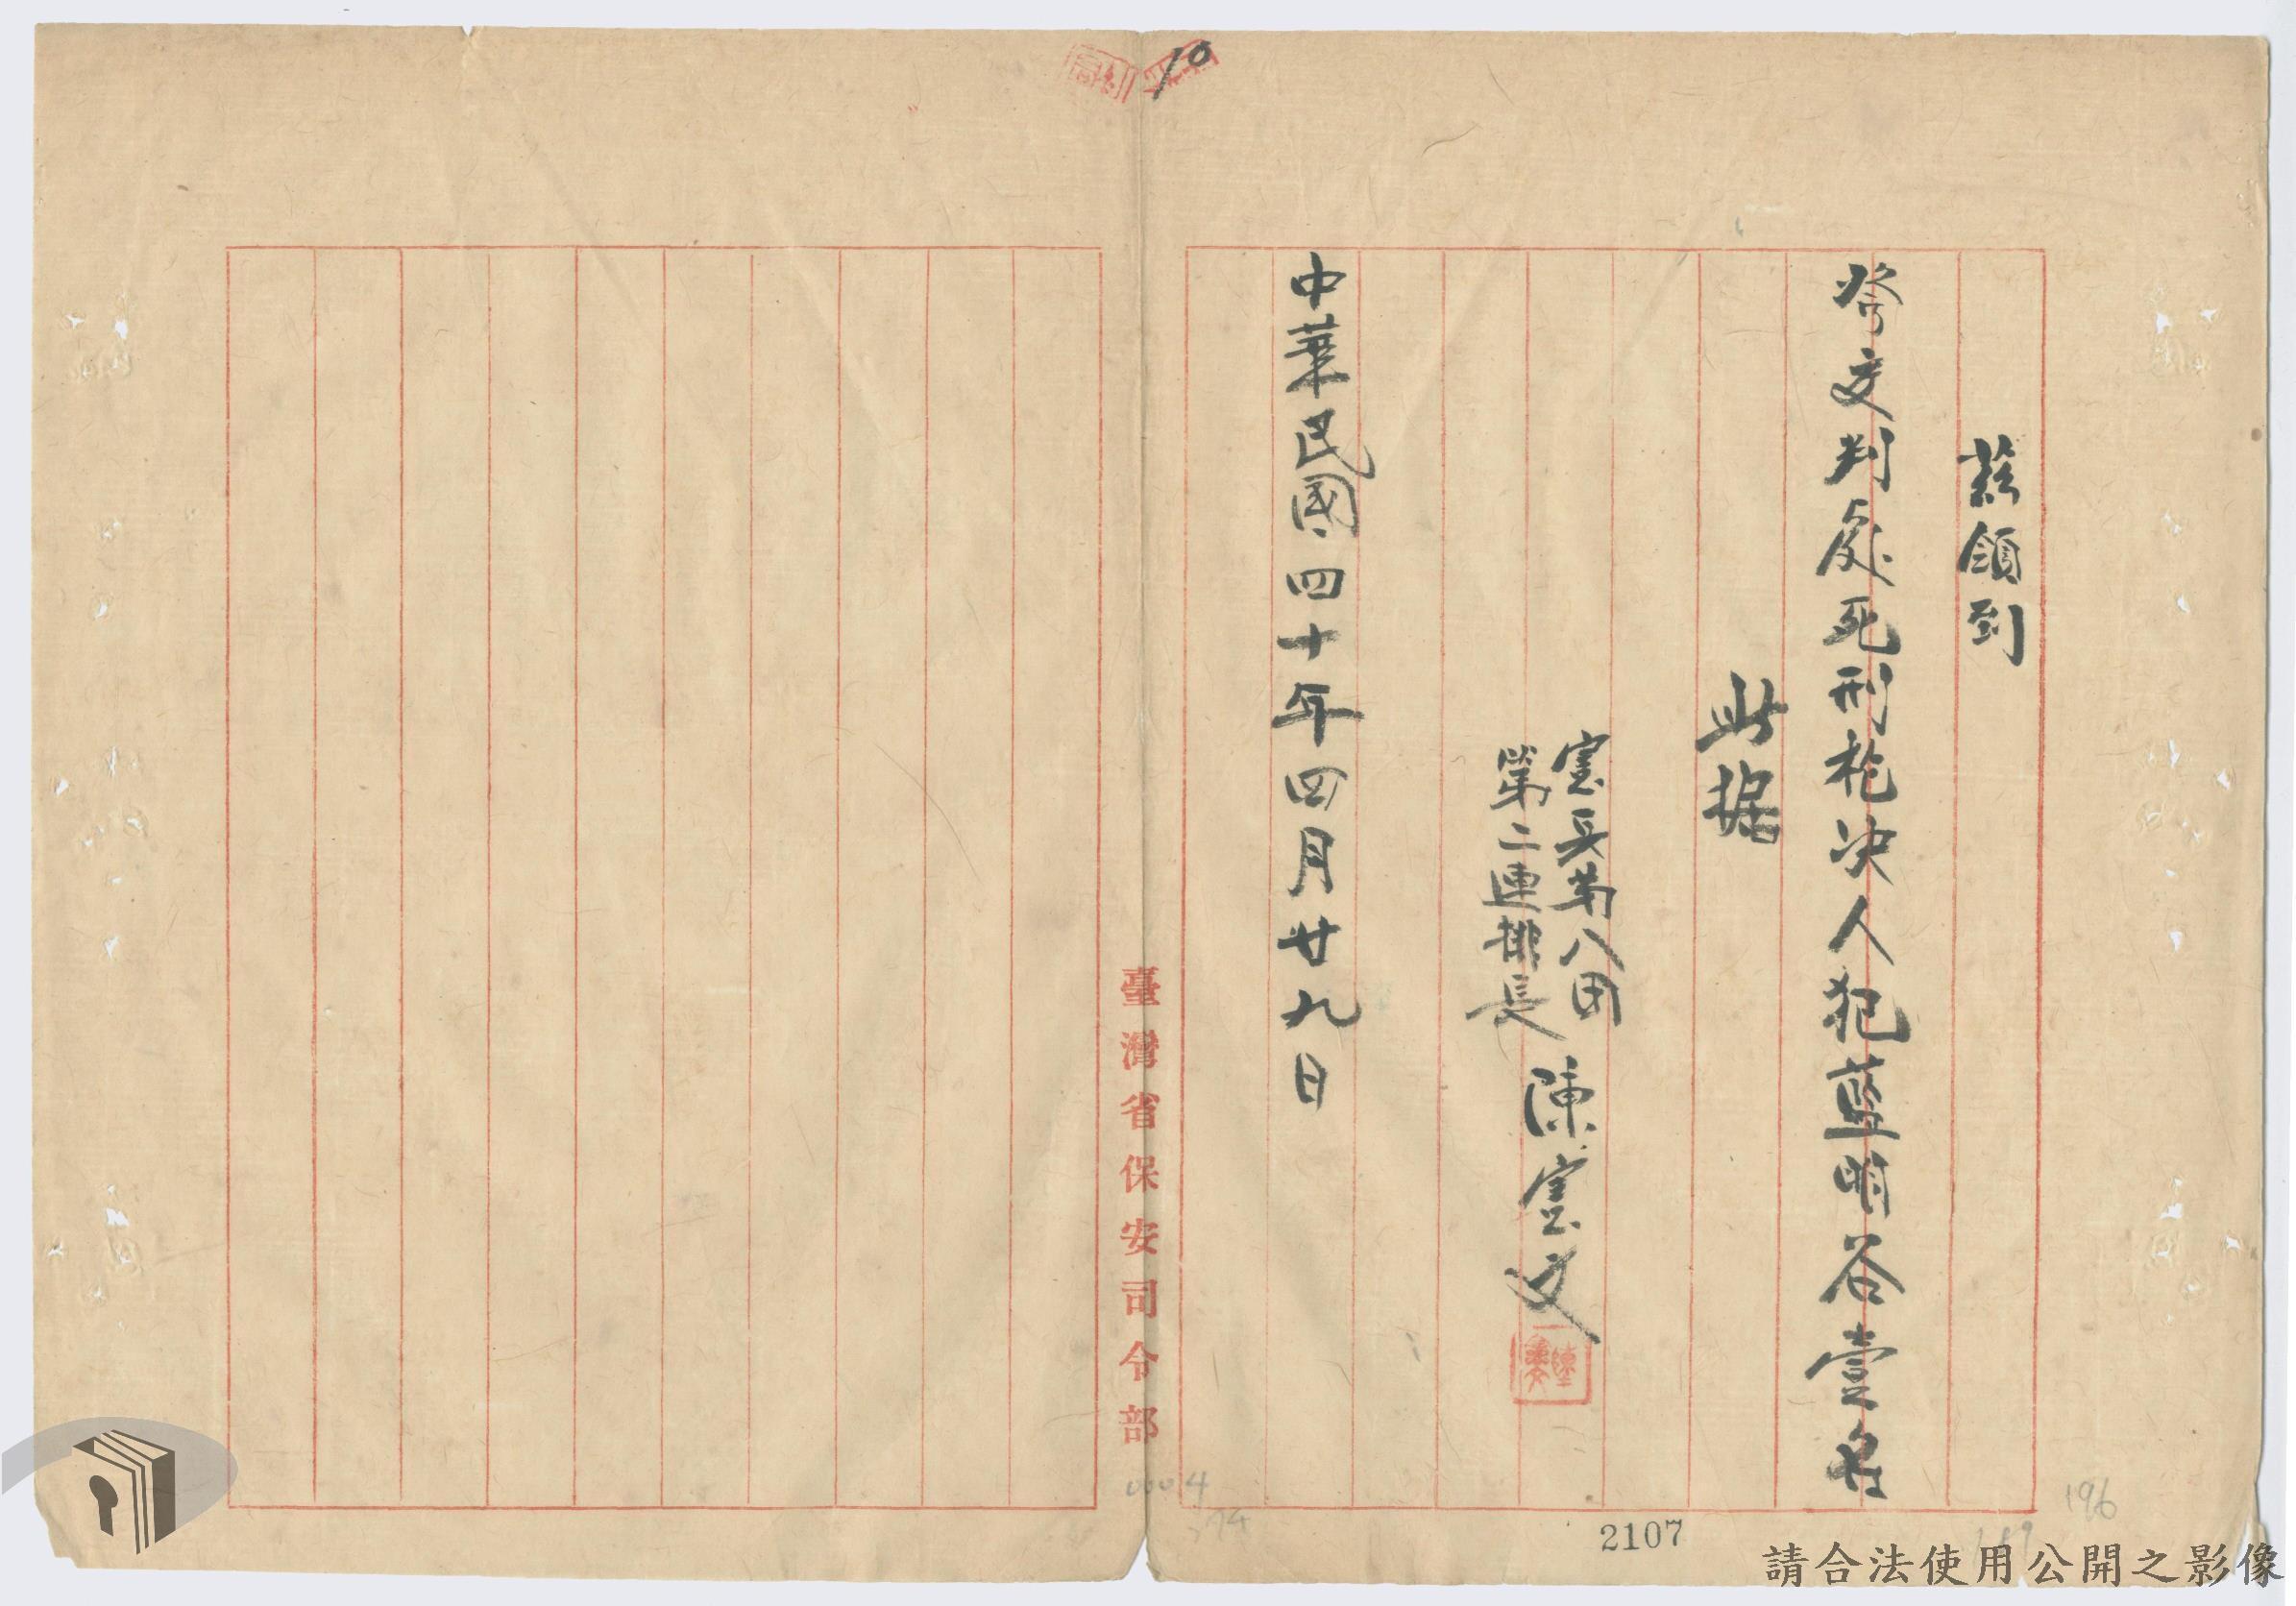 10
茲領到
發交判處死刑枪决人犯藍明谷壹名
此据
憲兵第八团
第二連排長 陳憲文
中華民國四十年四月廿九日
臺灣省保安司令部
0004
2107
196
請合法使用公開之影像